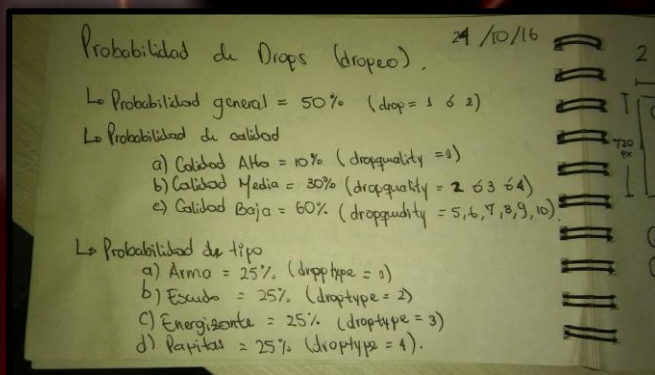 24/10/16
Probabilidad de Drops (dropeo).
↳ Probabilidad general = 50% (drop = 1 ó 2)
↳ Probabilidad de calidad
a) Calidad Alta = 10% (dropquality = 1)
b) Calidad Media = 30% (dropquality = 2 ó 3 ó 4)
c) Calidad Baja = 60% (dropquality = 5, 6, 7, 8, 9, 10)
↳ Probabilidad de tipo
a) Arma = 25% (droptype = 1)
b) Escudo = 25% (droptype = 2)
c) Energizante = 25% (droptype = 3)
d) Papitas = 25% (droptype = 4).
2
720
px